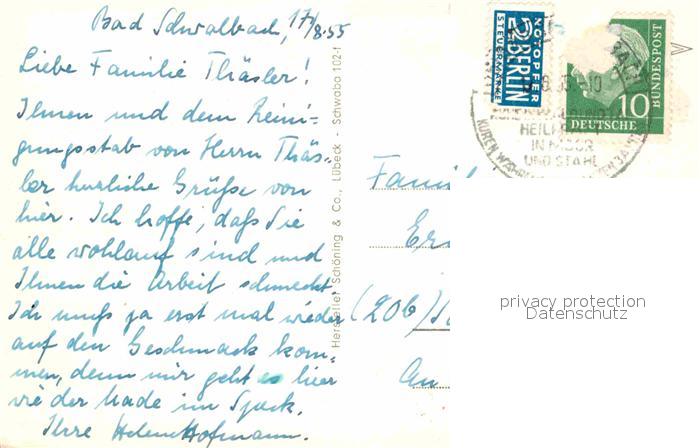 Bad Schwalbach, 17/8.55
Liebe Familie Thäsler!
Ihnen und dem Reini-
gungsstab von Herrn Thäs-
ler herzliche Grüße von
hier. Ich hoffe, daß Sie
alle wohlauf sind und
Ihnen die Arbeit schmeckt.
Ich muß ja erst mal wieder
auf den Geschmack kom-
men, denn mir geht es hier
wie der Made im Speck.
Ihre Helene Hofmann.
Hersteller: Schöning & Co., Lübeck - Schwaba 102-f
NOTOPFER
2 BERLIN
STEUERMARKE
10
DEUTSCHE
BUNDESPOST
HEIL
IN MOOR
UND STAHL
Famil
(20b)
An
privacy protection
Datenschutz